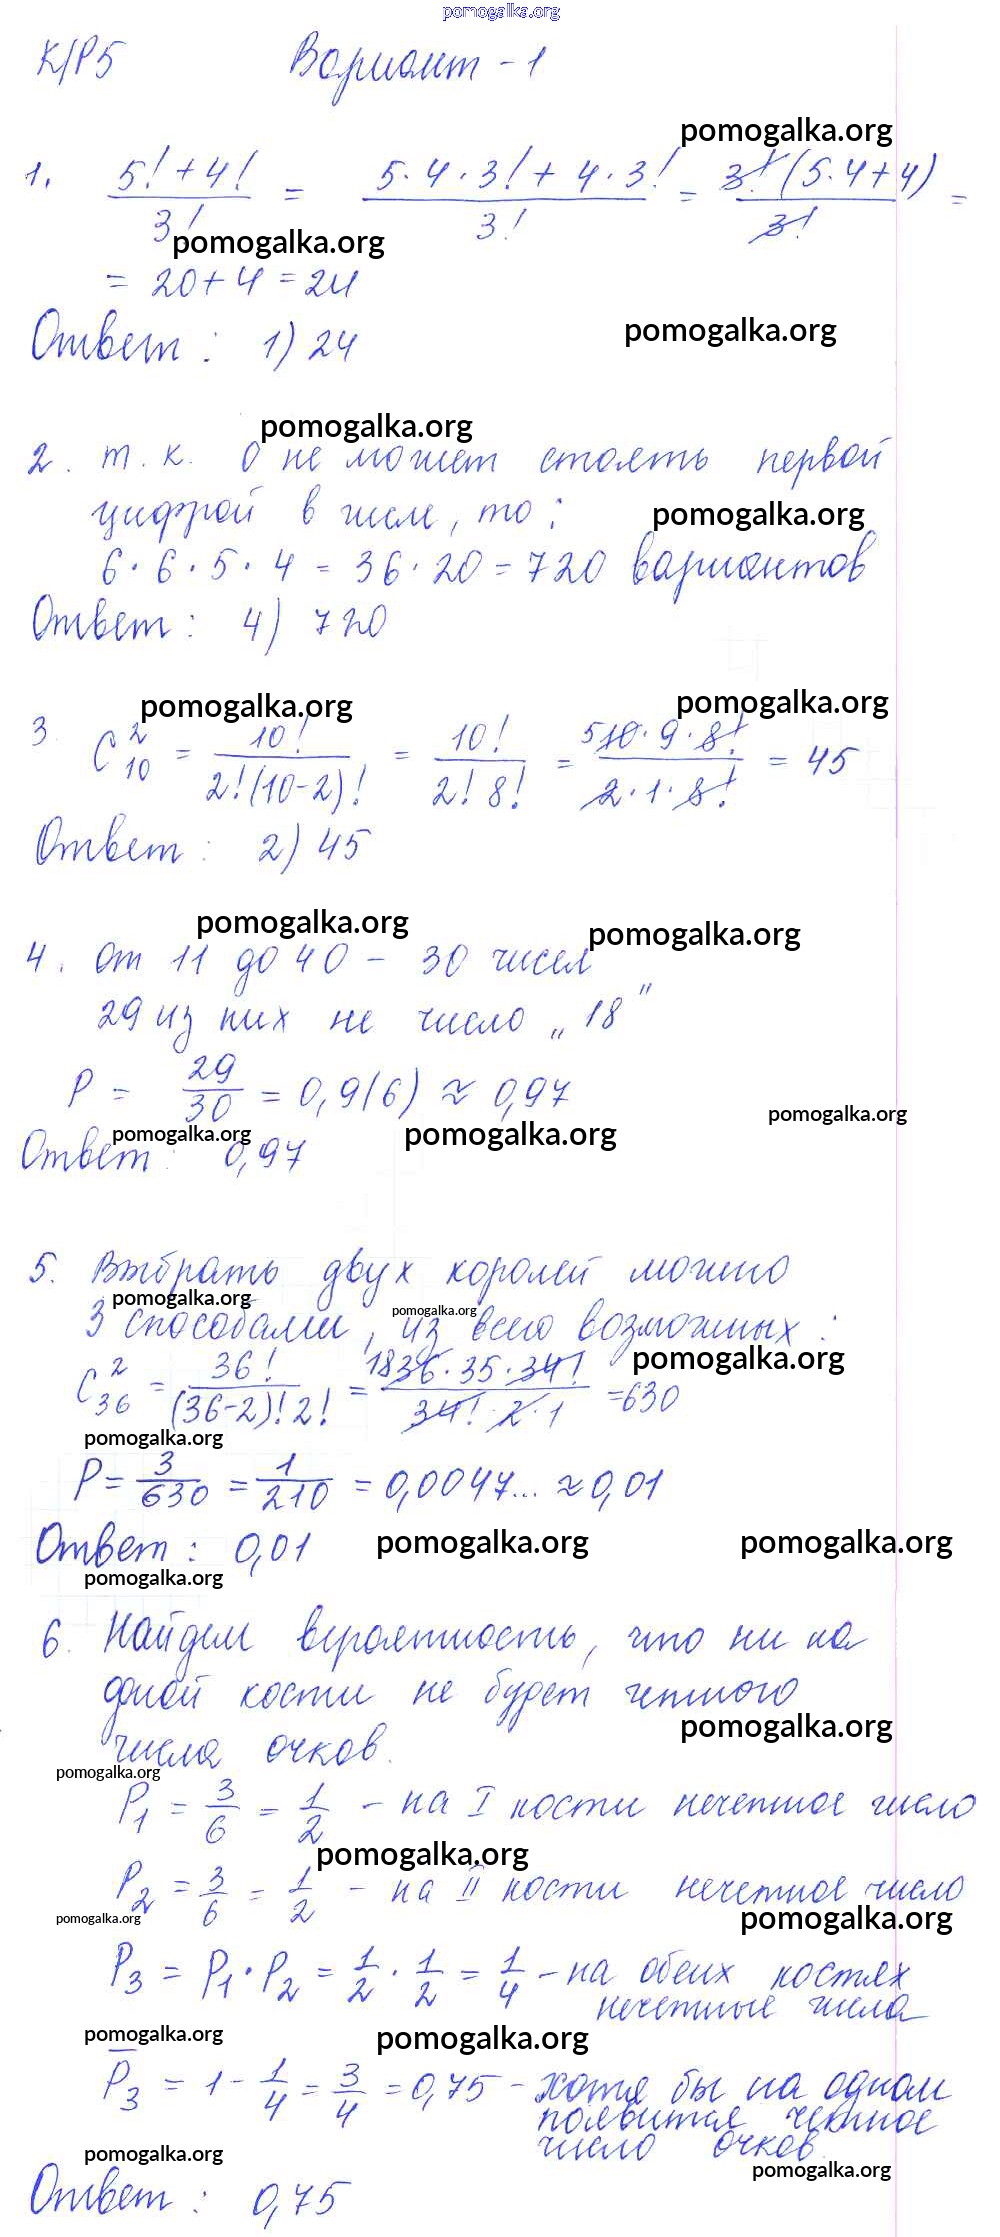 pomogalka.org
К/Р5 Вариант - 1
pomogalka.org
1. (5! + 4!)/3! = (5·4·3! + 4·3!)/3! = 3!(5·4+4)/3! =
pomogalka.org
= 20 + 4 = 24
Ответ: 1) 24
pomogalka.org
pomogalka.org
2. т.к. 0 не может стоять первой
цифрой в числе, то:
pomogalka.org
6·6·5·4 = 36·20 = 720 вариантов
Ответ: 4) 720
pomogalka.org
pomogalka.org
3. C²₁₀ = 10!/(2!(10-2)!) = 10!/(2! 8!) = 5 10·9·8!/(2·1·8!) = 45
Ответ: 2) 45
pomogalka.org
pomogalka.org
4. От 11 до 40 – 30 чисел
29 из них не число „18"
P = 29/30 = 0,9(6) ≈ 0,97
pomogalka.org
pomogalka.org
pomogalka.org
Ответ: 0,97
5. Выбрать двух королей можно
pomogalka.org
pomogalka.org
3 способами, из всего возможных:
pomogalka.org
C²₃₆ = 36!/((36-2)! 2!) = 18 36·35·34!/(34!·2·1) = 630
pomogalka.org
P = 3/630 = 1/210 = 0,0047... ≈ 0,01
Ответ: 0,01
pomogalka.org
pomogalka.org
pomogalka.org
6. Найдем вероятность, что ни на
одной кости не будет четного
pomogalka.org
числа очков.
pomogalka.org
P₁ = 3/6 = 1/2 – на I кости нечетное число
pomogalka.org
P₂ = 3/6 = 1/2 – на II кости нечетное число
pomogalka.org
pomogalka.org
P₃ = P₁·P₂ = 1/2 · 1/2 = 1/4 – на обеих костях
нечетные числа
pomogalka.org
pomogalka.org
P̅₃ = 1 - 1/4 = 3/4 = 0,75 – хотя бы на одном
появится четное
число очков.
pomogalka.org
pomogalka.org
Ответ: 0,75